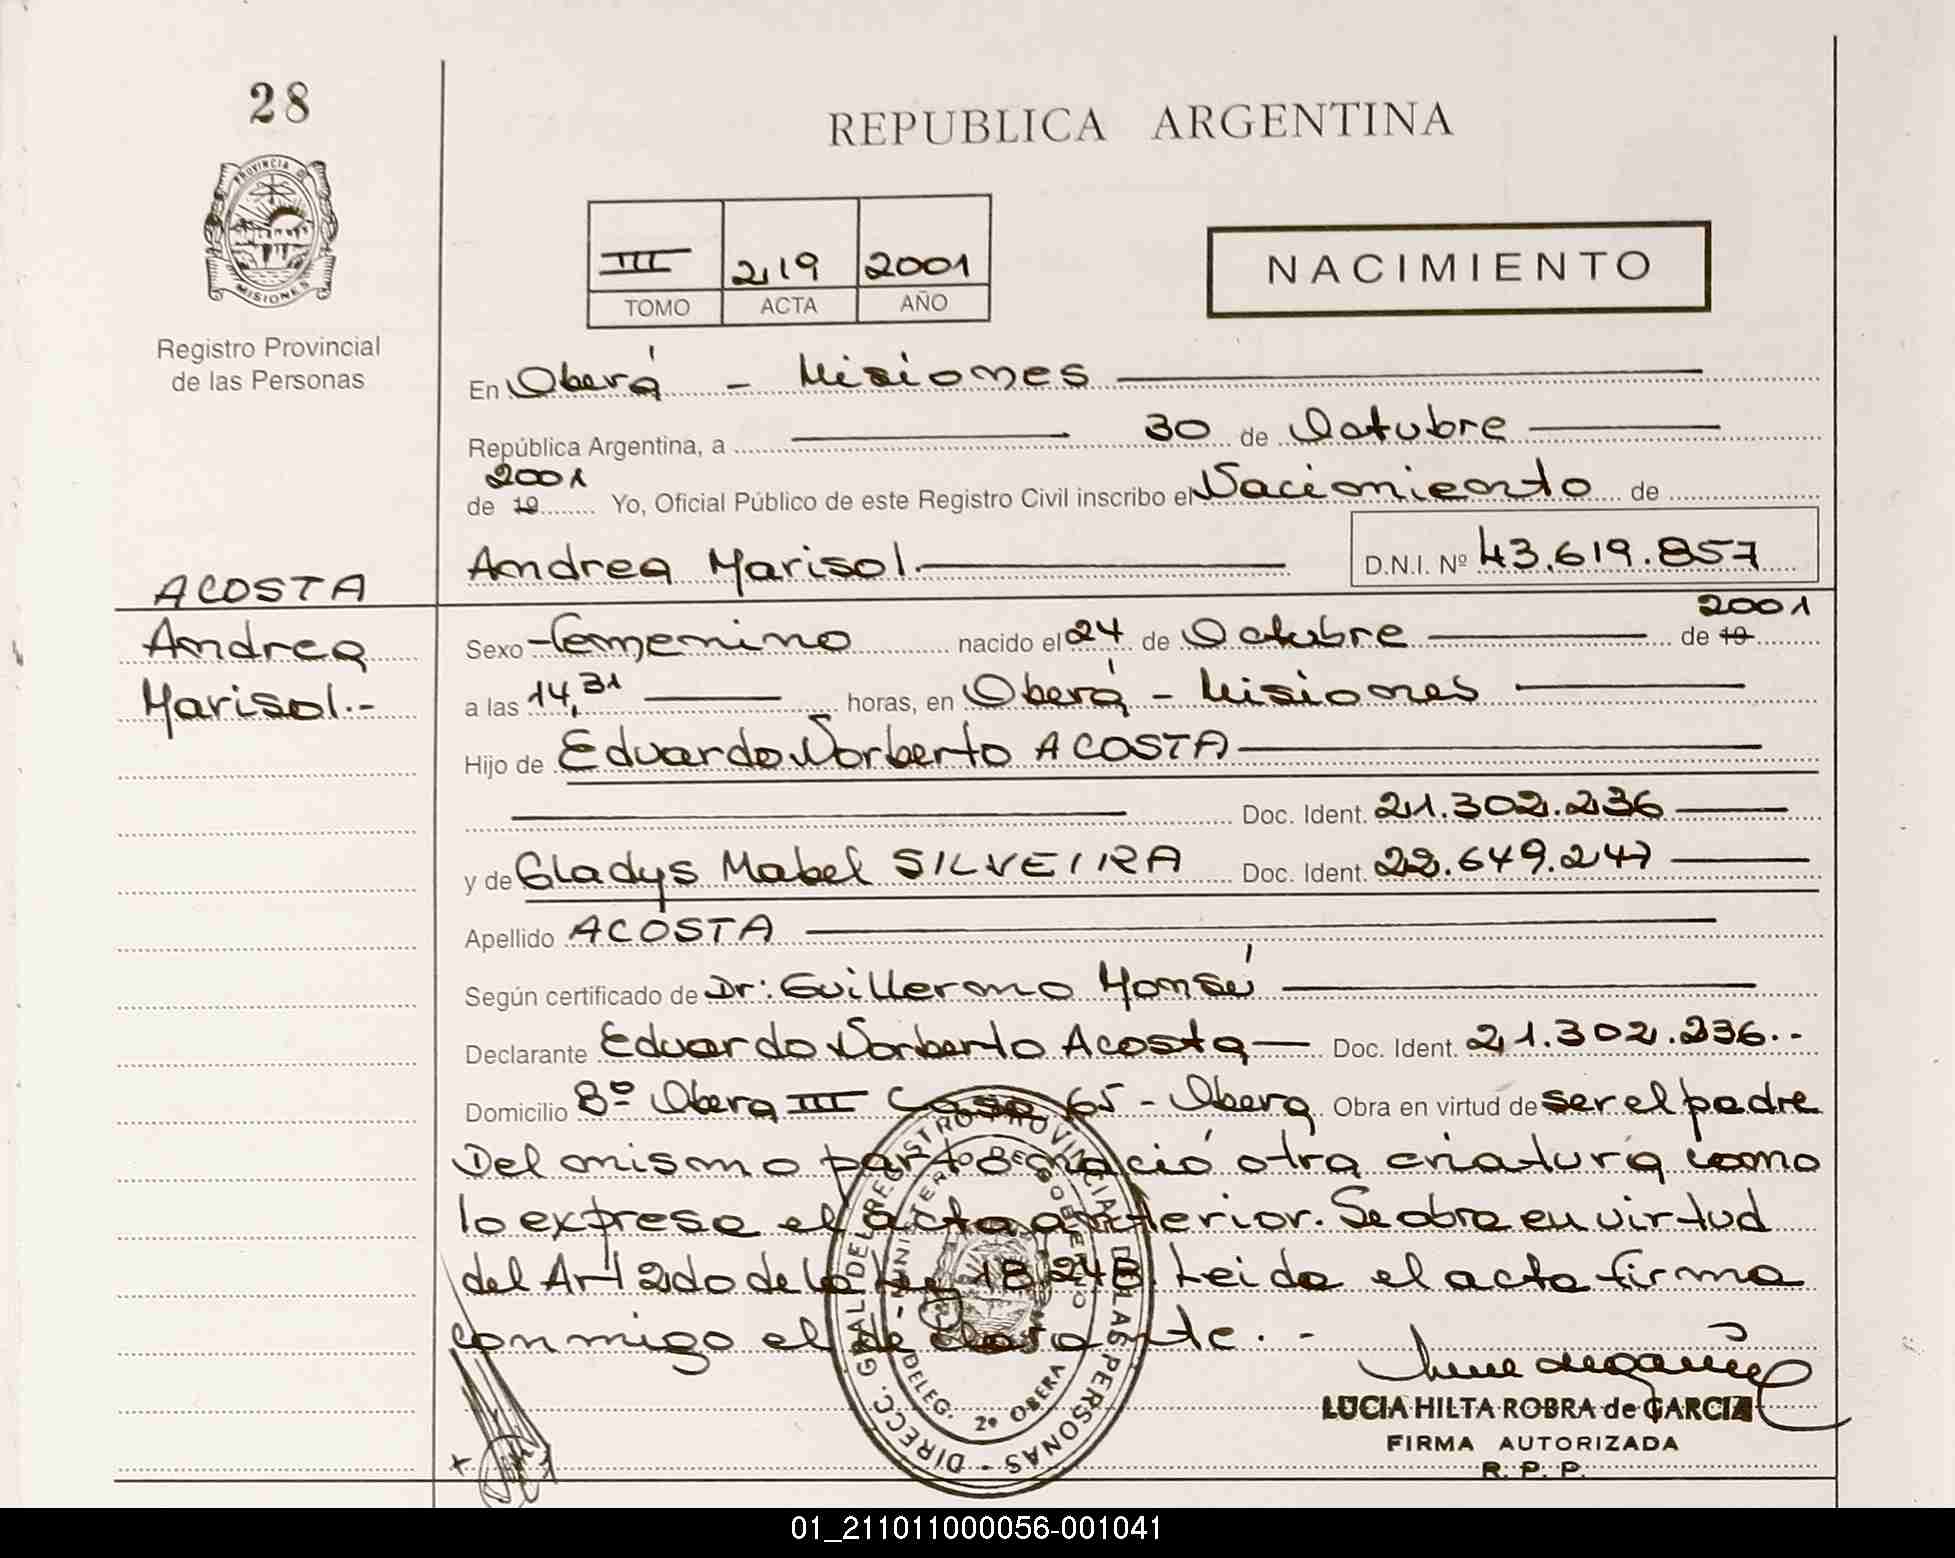 28
REPUBLICA ARGENTINA
PROVINCIA DE
MISIONES
Registro Provincial
de las Personas
III 219 2001
TOMO ACTA AÑO
NACIMIENTO
En Oberá - Misiones
República Argentina, a 30 de Octubre
2001
de 19 Yo, Oficial Público de este Registro Civil inscribo el Nacimiento de
Andrea Marisol D.N.I. Nº 43.619.857
ACOSTA
Andrea
Marisol.-
2001
Sexo femenino nacido el 24 de Octubre de 19
a las 14,31 horas, en Oberá - Misiones
Hijo de Eduardo Norberto ACOSTA
Doc. Ident. 21.302.236
y de Gladys Mabel SILVEIRA Doc. Ident. 22.649.247
Apellido ACOSTA
Según certificado de Dr: Guillermo
Declarante Eduardo Norberto Acosta Doc. Ident. 21.302.236.-
Domicilio Bº Obera III Casa 65 - Obera Obra en virtud de ser el padre
Del mismo parto nació otra criatura como
lo expresa el acta anterior. Se obra en virtud
del Art 2do de la ley 18.248. Leida el acta firma
conmigo el declarante.-
DIRECC. GRAL DEL REGISTRO PROVINCIAL DE LAS PERSONAS -
MINISTERIO DE GOBIERNO
DELEG. 2º OBERA
LUCIA HILTA ROBRA de GARCIA
FIRMA AUTORIZADA
R. P. P.
01_211011000056-001041